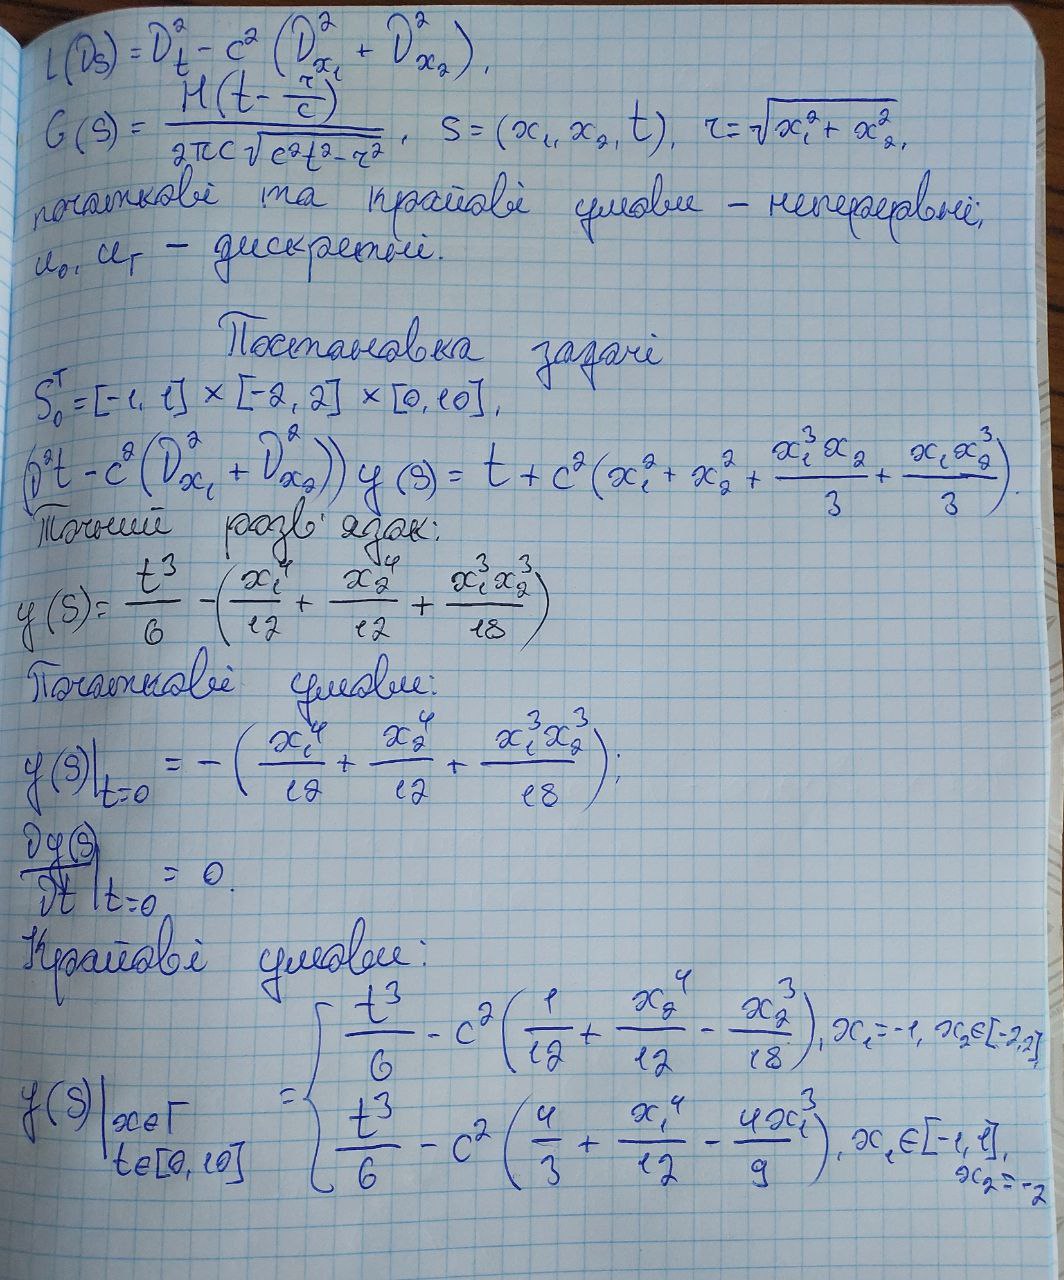 L(Ds) = D²t - c² (D²x₁ + D²x₂),
G(s) = H(t - r/c) / 2πc√c²t²-r², s = (x₁, x₂, t), r = √x₁² + x₂²,
початкові та крайові умови - неперервні,
u₀, uг - дискретні.
Постановка задачі
S₀ᵀ = [-1, 1] × [-2, 2] × [0, 10],
(D²t - c² (D²x₁ + D²x₂)) y(s) = t + c² (x₁² + x₂² + x₁³x₂/3 + x₁x₂³/3).
Точний розв'язок:
y(s) = t³/6 - (x₁⁴/12 + x₂⁴/12 + x₁³x₂³/18)
Початкові умови:
y(s)|t=0 = - (x₁⁴/12 + x₂⁴/12 + x₁³x₂³/18);
∂y(s)/∂t |t=0 = 0.
Крайові умови:
y(s)|x∈Г t∈[0, 10] = { t³/6 - c² (1/12 + x₂⁴/12 - x₂³/18), x₁ = -1, x₂∈[-2, 2],
t³/6 - c² (4/3 + x₁⁴/12 - 4x₁³/9), x₁∈[-1, 1], x₂ = -2